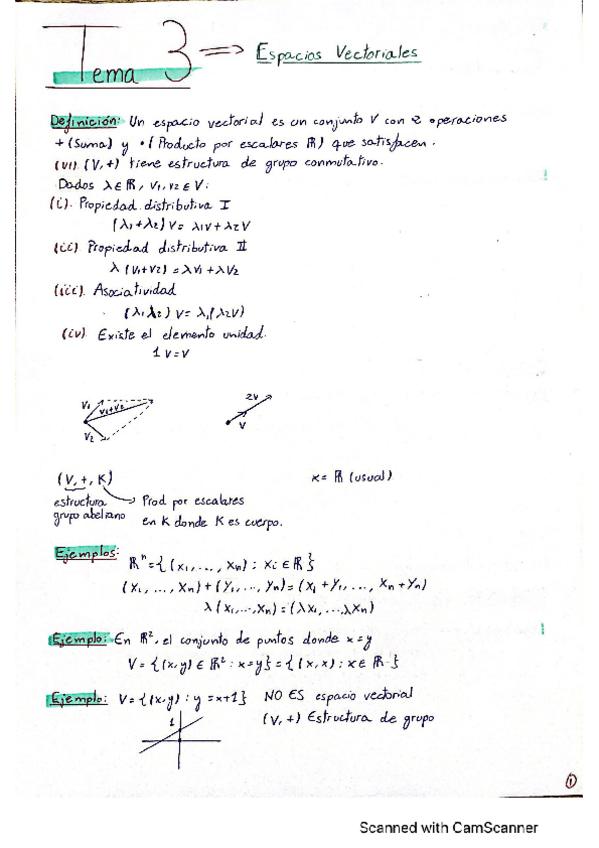 Tema 3 ⟹ Espacios Vectoriales
Definición: Un espacio vectorial es un conjunto V con 2 operaciones
+ (Suma) y · (Producto por escalares ℝ) que satisfacen.
(vi). (V, +) tiene estructura de grupo conmutativo.
Dados λ ∈ ℝ, v1, v2 ∈ V:
(i). Propiedad distributiva I
(λ1 + λ2) V = λ1V + λ2V
(ii) Propiedad distributiva II
λ (V1 + V2) = λV1 + λV2
(iii). Asociatividad
(λ1 λ2) V = λ1 (λ2V)
(iv). Existe el elemento unidad.
1 V = V
V1 V1+V2 V2
2V V
(V, +, K) K = ℝ (usual)
estructura grupo abeliano
Prod por escalares
en K donde K es cuerpo.
Ejemplos: ℝⁿ = {(x1, ..., xn) : xi ∈ ℝ}
(x1, ..., xn) + (y1, ..., yn) = (x1 + y1, ..., xn + yn)
λ (x1, ..., xn) = (λx1, ..., λxn)
Ejemplo: En ℝ², el conjunto de puntos donde x = y
V = {(x,y) ∈ ℝ² : x = y} = {(x, x) : x ∈ ℝ}
Ejemplo: V = {(x,y) : y = x+1} NO ES espacio vectorial
1 (V, +) Estructura de grupo
①
Scanned with CamScanner